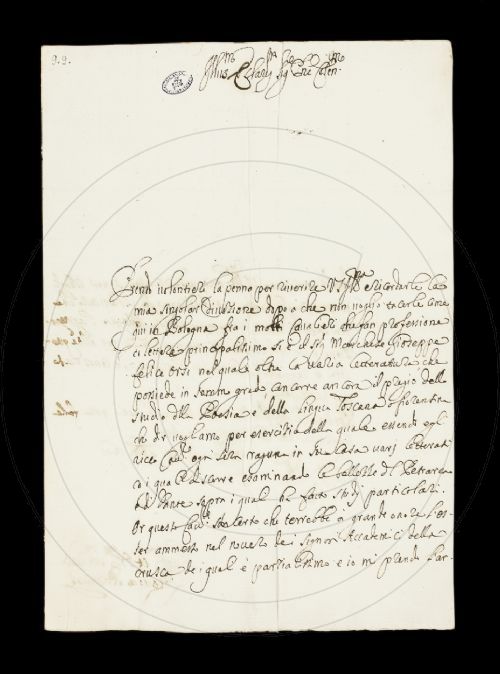 9.9.
Illus.mo e Chiar.mo Sig.re
Prendo volontieri la penna per riverire V.S. Ill.ma e ricordarle la
mia singolar divozione dopo a che non voglio tacerle come
qui in Bologna fra i molti Cavalieri che fan professione
di lettere principalissimo si è il Sig. Marchese Gioseppe
Felice Orsi nel quale oltre la varia letteratura che
possiede in sommo grado concorre ancora il pregio dello
studio della Poesia e della lingua Toscana o fiorentina
che dir vogliamo per esercitio della quale essendo egli
ricco Cav.re ogni sera raguna in sua casa varj letterati
co i quali discorre esaminando le bellezze del Petrarca
e di Dante sopra i quali ha fatto studj particolari.
Or questo Cav.re so certo che terrebbe a grande onore l'es-
ser ammesso nel novero dei Signori Accademici della
Crusca de i quali è parzialissimo e io mi prendo l'ar-